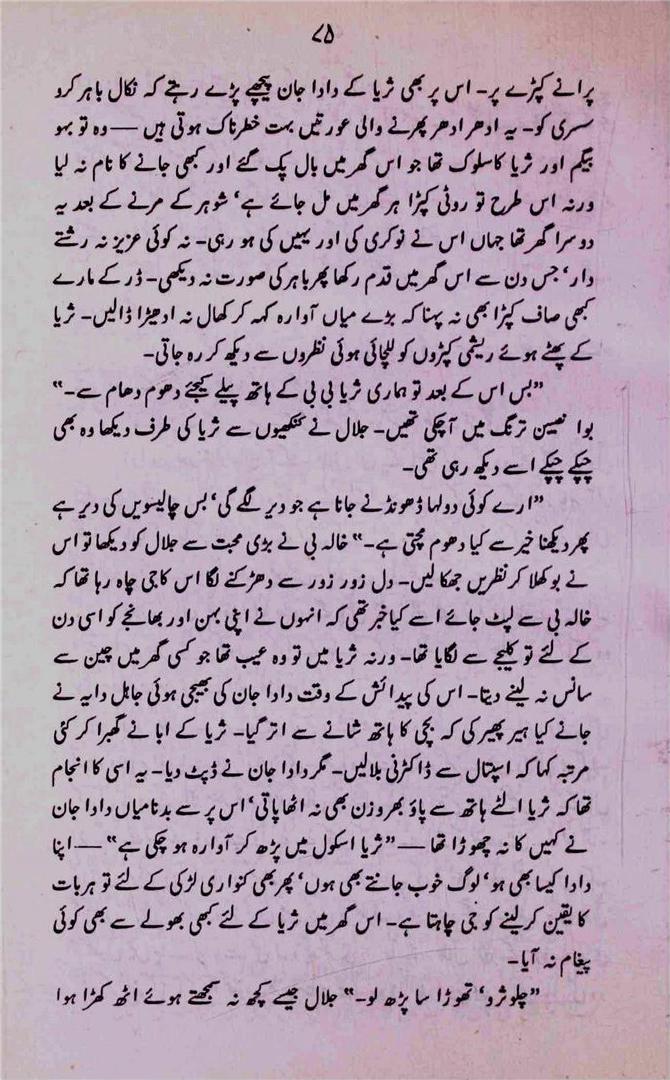 ۷۵
پرانے کپڑے پر۔ اس پر بھی ثریا کے دادا جان پیچھے پڑے رہتے کہ نکال باہر کرو
سسری کو۔ یہ ادھر ادھر پھرنے والی عورتیں بہت خطرناک ہوتی ہیں — وہ تو بہو
بیگم اور ثریا کا سلوک تھا جو اس گھر میں بال پک گئے اور کبھی جانے کا نام نہ لیا
ورنہ اس طرح تو روٹی کپڑا ہر گھر میں مل جائے ہے‘ شوہر کے مرنے کے بعد یہ
دوسرا گھر تھا جہاں اس نے نوکری کی اور یہیں کی ہو رہی۔ نہ کوئی عزیز نہ رشتے
دار‘ جس دن سے اس گھر میں قدم رکھا پھر باہر کی صورت نہ دیکھی۔ ڈر کے مارے
کبھی صاف کپڑا بھی نہ پہنا کہ بڑے میاں آوارہ کہہ کر کھال نہ ادھیڑا ڈالیں۔ ثریا
کے پھٹے ہوئے ریشمی کپڑوں کو للچائی ہوئی نظروں سے دیکھ کر رہ جاتی۔
”بس اس کے بعد تو ہماری ثریا بی بی کے ہاتھ پیلے کیجئے دھوم دھام سے۔“
بوا نصیبن ترنگ میں آچکی تھیں۔ جلال نے کنکھیوں سے ثریا کی طرف دیکھا وہ بھی
چپکے چپکے اسے دیکھ رہی تھی۔
”ارے کوئی دولہا ڈھونڈنے جانا ہے جو دیر لگے گی‘ بس چالیسویں کی دیر ہے
پھر دیکھنا خیر سے کیا دھوم مچتی ہے۔“ خالہ بی نے بڑی محبت سے جلال کو دیکھا تو اس
نے بوکھلا کر نظریں جھکا لیں۔ دل زور زور سے دھڑکنے لگا اس کا جی چاہ رہا تھا کہ
خالہ بی سے لپٹ جائے اسے کیا خبر تھی کہ انہوں نے اپنی بہن اور بھانجے کو اسی دن
کے لئے تو کلیجے سے لگایا تھا۔ ورنہ ثریا میں تو وہ عیب تھا جو کسی گھر میں چین سے
سانس نہ لینے دیتا۔ اس کی پیدائش کے وقت دادا جان کی بھیجی ہوئی جاہل دایہ نے
جانے کیا ہیر پھیر کی کہ بچی کا ہاتھ شانے سے اتر گیا۔ ثریا کے ابا نے گھبرا کر کئی
مرتبہ کہا کہ اسپتال سے ڈاکٹرنی بلالیں۔ مگر دادا جان نے ڈپٹ دیا۔ یہ اسی کا انجام
تھا کہ ثریا الٹے ہاتھ سے پاؤ بھر وزن بھی نہ اٹھا پاتی‘ اس پر سے بدنامیاں دادا جان
نے کہیں کا نہ چھوڑا تھا — ”ثریا اسکول میں پڑھ کر آوارہ ہو چکی ہے“ — اپنا
دادا کیسا بھی ہو‘ لوگ خوب جانتے بھی ہوں‘ پھر بھی کنواری لڑکی کے لئے تو ہر بات
کا یقین کر لینے کو جی چاہتا ہے۔ اس گھر میں ثریا کے لئے کبھی بھولے سے بھی کوئی
پیغام نہ آیا۔
”چلو ثرو‘ تھوڑا سا پڑھ لو۔“ جلال جیسے کچھ نہ سمجھتے ہوئے اٹھ کھڑا ہوا